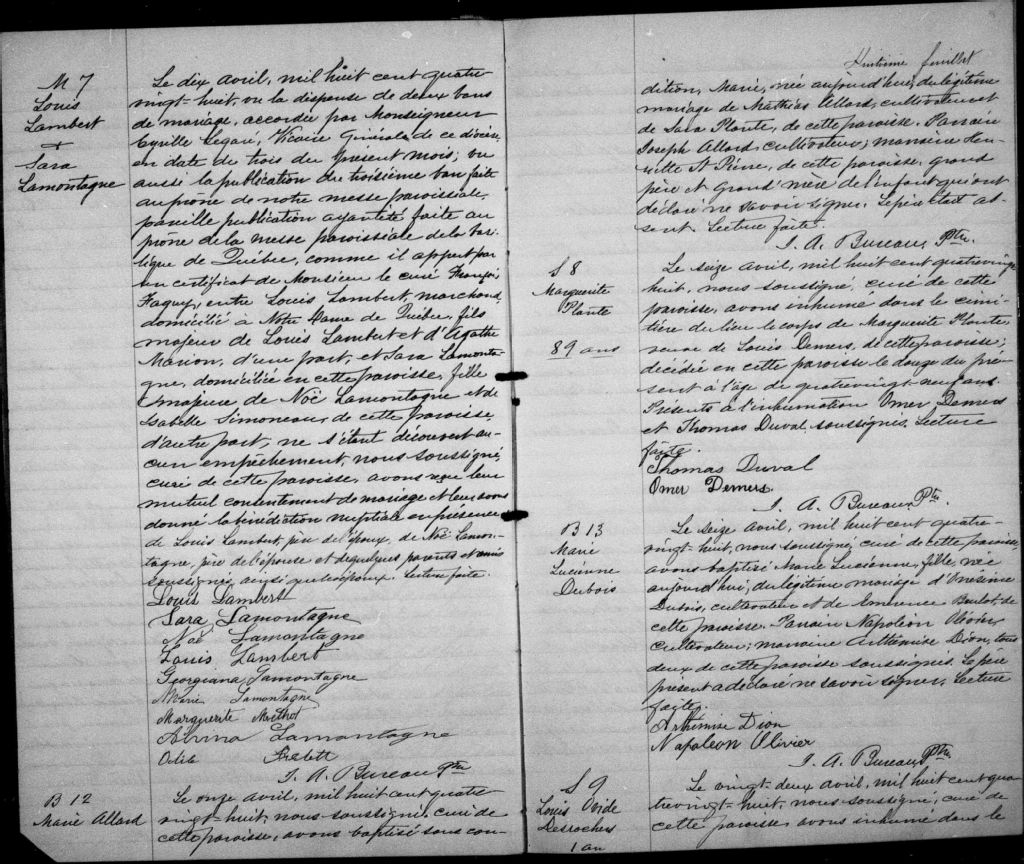 M 7
Louis
Lambert
+
Sara
Lamontagne
Le dix avril, mil huit cent quatre-
vingt-huit, vu la dispense de deux bans
de mariage, accordée par Monseigneur
Cyrille Legaré, Vicaire Général, de ce diocèse
en date du trois du présent mois; vu
aussi la publication du troisième ban faite
au prône de notre messe paroissiale,
pareille publication ayant été faite au
prône de la messe paroissiale de la basi-
lique de Québec, comme il appert par
un certificat de Monsieur le curé François
Faguy, entre Louis Lambert, marchand,
domicilié à Notre Dame de Québec, fils
majeur de Louis Lambert et d'Agathe
Marion, d'une part, et Sara Lamonta-
gne, domiciliée en cette paroisse, fille
majeure de Noë Lamontagne et de
Isabelle Simoneau, de cette paroisse,
d'autre part, ne s'étant découvert au-
cun empêchement, nous soussigné,
curé de cette paroisse, avons reçu leur
mutuel consentement de mariage et leur avons
donné la bénédiction nuptiale en présence
de Louis Lambert, père de l'époux, de Noë Lamon-
tagne, père de l'épouse et de quelques parents et amis
soussignés, ainsi que les époux. Lecture faite.
Louis Lambert
Sara Lamontagne
Noë Lamontagne
Louis Lambert
Georgiana Lamontagne
Marie Lamontagne
Marguerite Methot
Alvina Lamontagne
Odile
J. A. Bureau Ptre
B 12
Marie Allard
Le onze avril, mil huit cent quatre
vingt-huit, nous soussigné, curé de
cette paroisse, avons baptisé sous con-
Huitième feuillet
dition, Marie, née aujourd'hui, du légitime
mariage de Mathias Allard, cultivateur et
de Sara Plante, de cette paroisse. Parrain
Joseph Allard cultivateur; marraine Hen-
riette St Pierre, de cette paroisse, grand
père et grand'mère de l'enfant qui ont
déclaré ne savoir signer. Le père était ab-
sent. Lecture faite.
J. A. Bureau, Ptre.
S 8
Marguerite
Plante
89 ans
Le seize avril, mil huit cent quatrevingt
huit, nous soussigné, curé de cette
paroisse, avons inhumé dans le cime-
tière du lieu le corps de Marguerite Plante,
veuve de Louis Demers, de cette paroisse;
décédée en cette paroisse le douze du pré-
sent à l'âge de quatrevingt neuf ans.
Présents à l'inhumation Omer Demers
et Thomas Duval soussignés. Lecture
faite.
Thomas Duval
Omer Demers.
J. A. Bureau, Ptre.
B 13
Marie
Lucienne
Dubois
Le seize avril, mil huit cent quatre-
vingt-huit, nous soussigné, curé de cette paroisse,
avons baptisé Marie Lucienne, fille, née
aujourd'hui, du légitime mariage d'Onésime
Dubois, cultivateur et de Emerence Boulet, de
cette paroisse. Parrain Napoléon Olivier
cultivateur; marraine Arthémise Dion, tous
deux de cette paroisse soussignés. Le père
présent a déclaré ne savoir signer. Lecture
faite.
Arthémise Dion
Napoléon Olivier
J. A. Bureau, Ptre
S 9
Louis Ovide
Desrochers
1 an
Le vingt-deux avril, mil huit cent qua-
trevingt-huit, nous soussigné, curé de
cette paroisse avons inhumé dans le